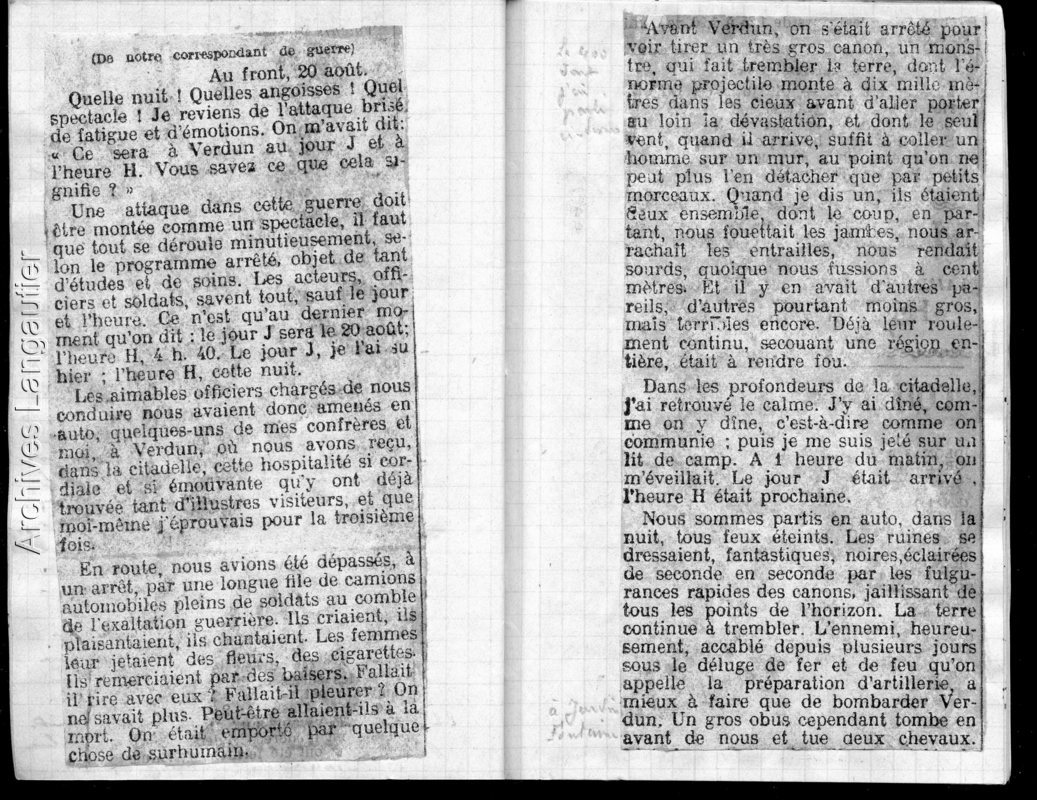 (De notre correspondant de guerre)
Au front, 20 août.
Quelle nuit ! Quelles angoisses ! Quel
spectacle ! Je reviens de l'attaque brisé
de fatigue et d'émotions. On m'avait dit:
« Ce sera à Verdun au jour J et à
l'heure H. Vous savez ce que cela si-
gnifie ? »
Une attaque dans cette guerre doit
être montée comme un spectacle, il faut
que tout se déroule minutieusement, se-
lon le programme arrêté, objet de tant
d'études et de soins. Les acteurs, offi-
ciers et soldats, savent tout, sauf le jour
et l'heure. Ce n'est qu'au dernier mo-
ment qu'on dit : le jour J sera le 20 août;
l'heure H, 4 h. 40. Le jour J, je l'ai su
hier ; l'heure H, cette nuit.
Les aimables officiers chargés de nous
conduire nous avaient donc amenés en
auto, quelques-uns de mes confrères et
moi, à Verdun, où nous avons reçu,
dans la citadelle, cette hospitalité si cor-
diale et si émouvante qu'y ont déjà
trouvée tant d'illustres visiteurs, et que
moi-même j'éprouvais pour la troisième
fois.
En route, nous avions été dépassés, à
un arrêt, par une longue file de camions
automobiles pleins de soldats au comble
de l'exaltation guerrière. Ils criaient, ils
plaisantaient, ils chantaient. Les femmes
leur jetaient des fleurs, des cigarettes.
Ils remerciaient par des baisers. Fallait
il rire avec eux ? Fallait-il pleurer ? On
ne savait plus. Peut-être allaient-ils à la
mort. On était emporté par quelque
chose de surhumain.
Avant Verdun, on s'était arrêté pour
voir tirer un très gros canon, un mons-
tre, qui fait trembler la terre, dont l'é-
norme projectile monte à dix mille mè-
tres dans les cieux avant d'aller porter
au loin la dévastation, et dont le seul
vent, quand il arrive, suffit à coller un
homme sur un mur, au point qu'on ne
peut plus l'en détacher que par petits
morceaux. Quand je dis un, ils étaient
deux ensemble, dont le coup, en par-
tant, nous fouettait les jambes, nous ar-
rachaît les entrailles, nous rendait
sourds, quoique nous fussions à cent
mètres. Et il y en avait d'autres pa-
reils, d'autres pourtant moins gros,
mais terribles encore. Déjà leur roule-
ment continu, secouant une région en-
tière, était à rendre fou.
Dans les profondeurs de la citadelle,
j'ai retrouvé le calme. J'y ai dîné, com-
me on y dîne, c'est-à-dire comme on
communie ; puis je me suis jeté sur un
lit de camp. A 1 heure du matin, on
m'éveillait. Le jour J était arrivé ,
l'heure H était prochaine.
Nous sommes partis en auto, dans la
nuit, tous feux éteints. Les ruines se
dressaient, fantastiques, noires,éclairées
de seconde en seconde par les fulgu-
rances rapides des canons, jaillissant de
tous les points de l'horizon. La terre
continue à trembler. L'ennemi, heureu-
sement, accablé depuis plusieurs jours
sous le déluge de fer et de feu qu'on
appelle la préparation d'artillerie, a
mieux à faire que de bombarder Ver-
dun. Un gros obus cependant tombe en
avant de nous et tue deux chevaux.
Archives Langautier